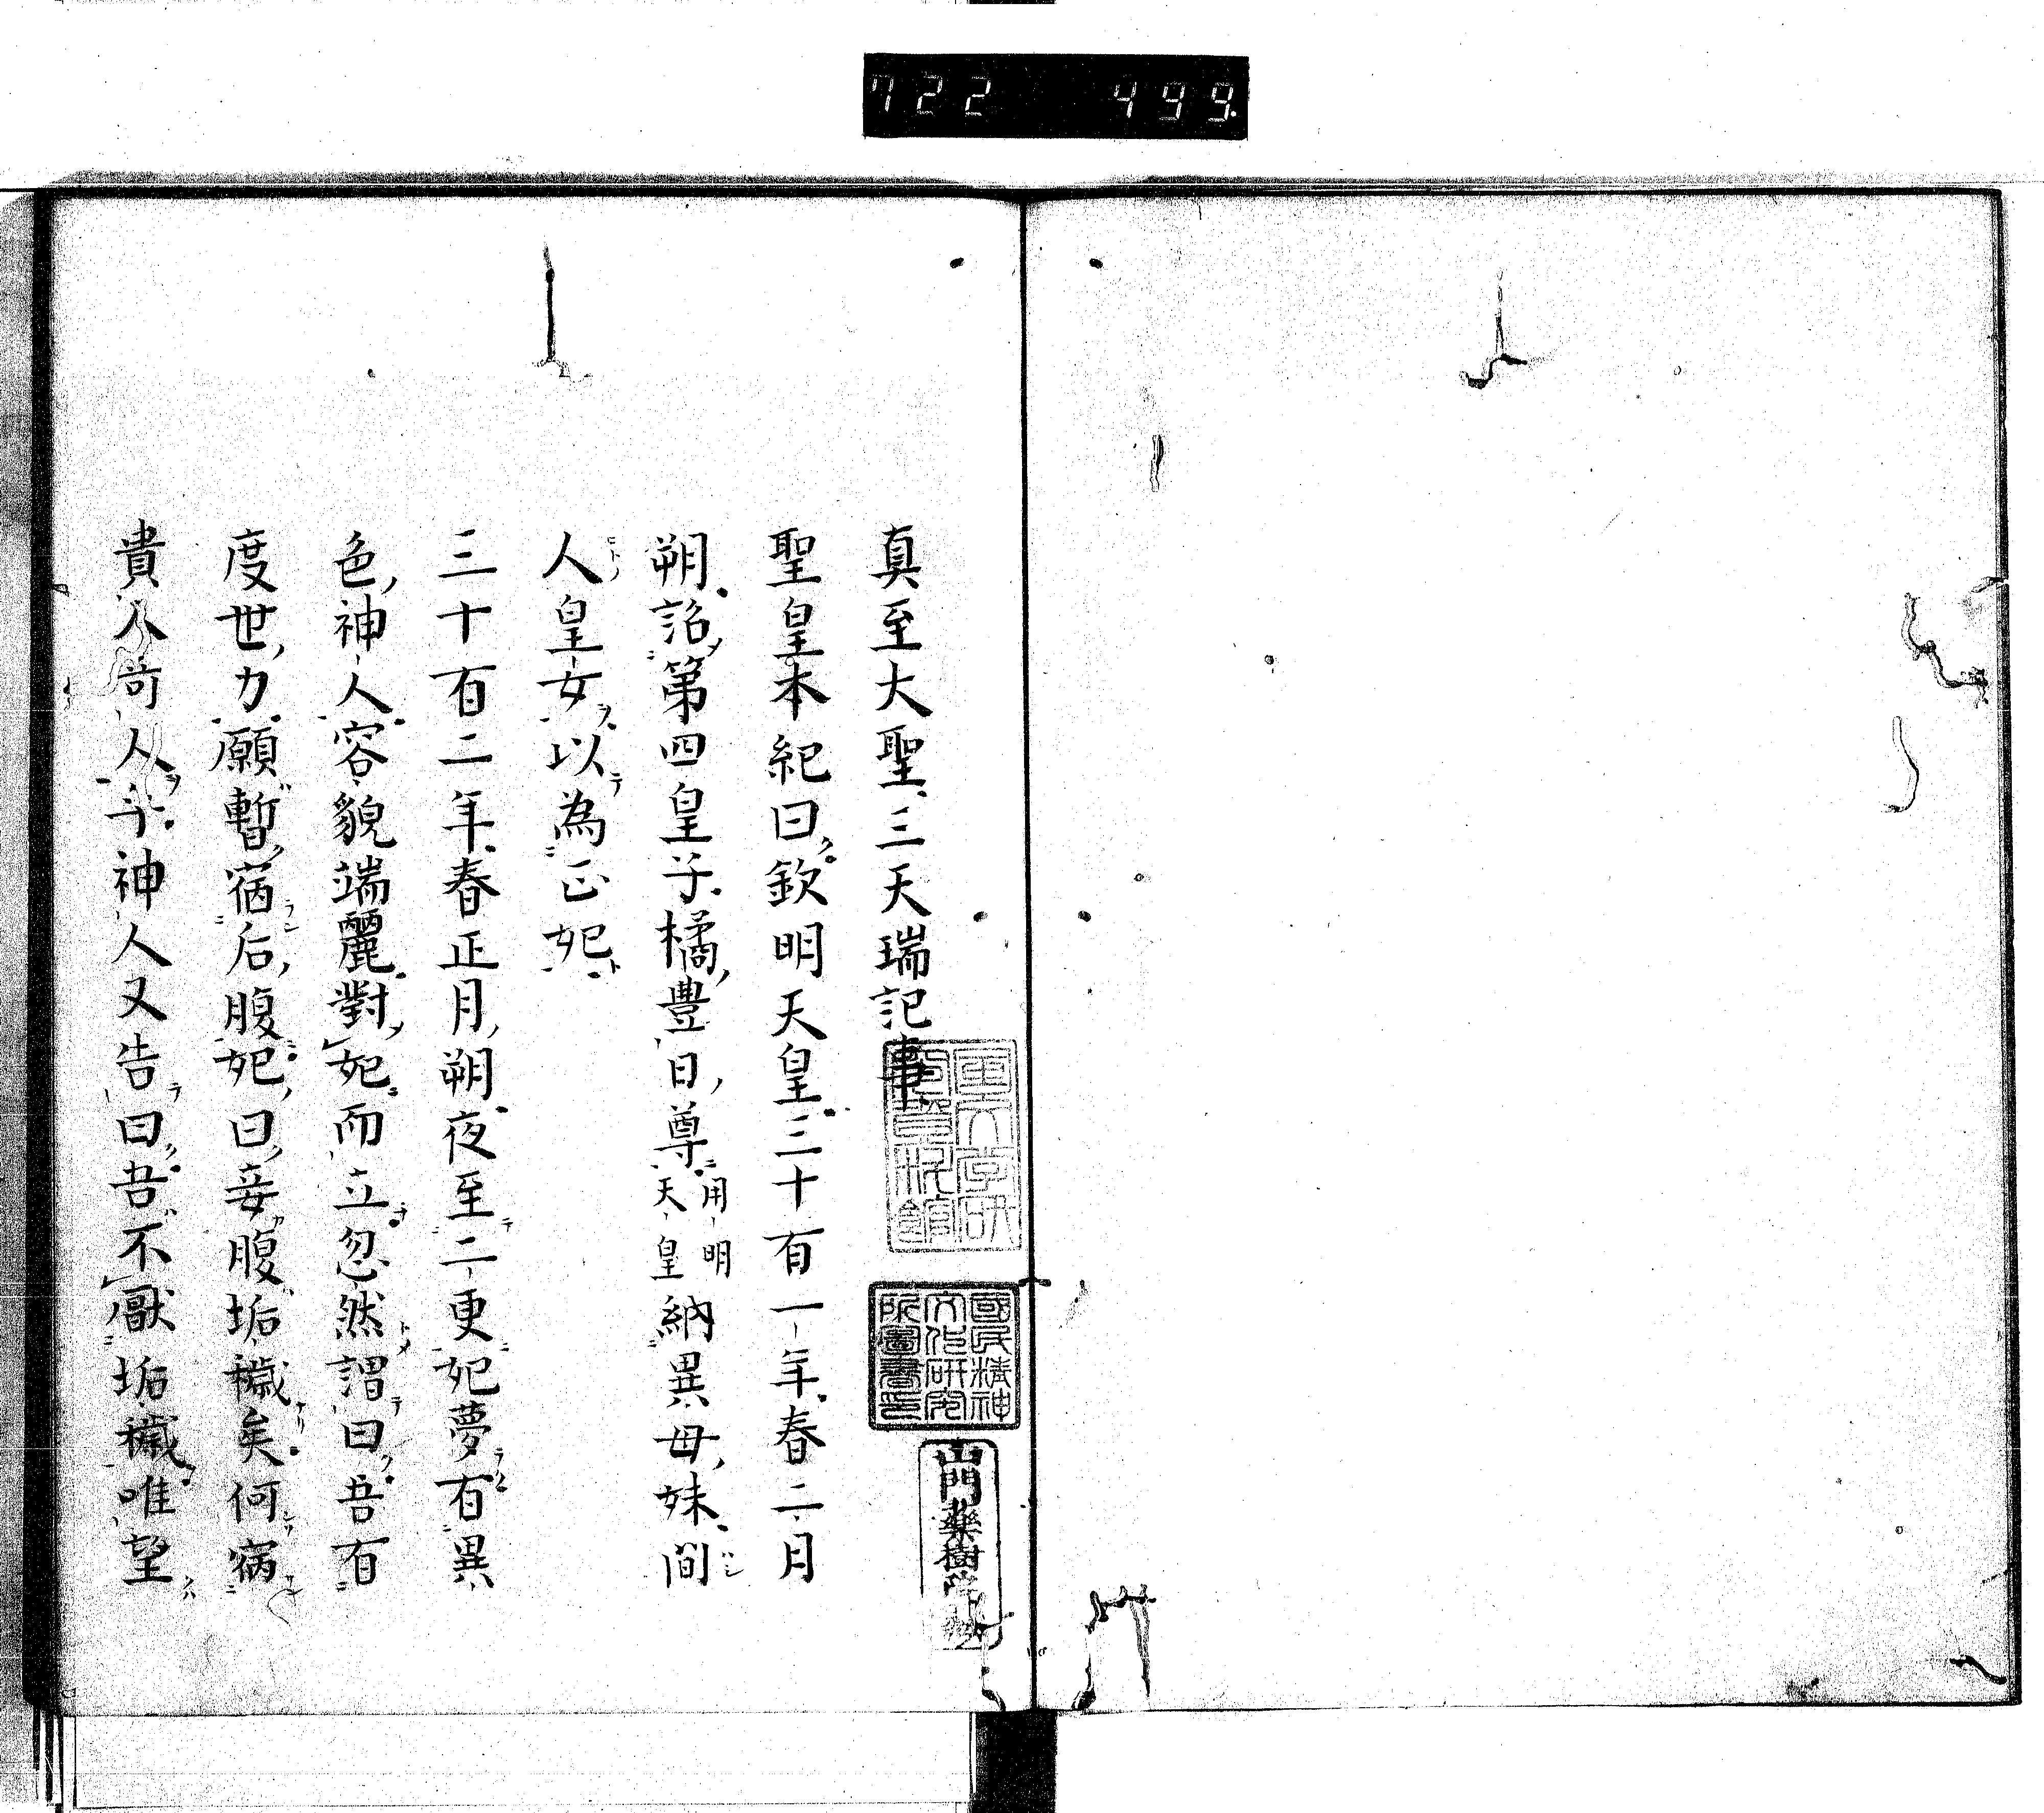 722 499
真至大聖三天瑞記事
聖皇本紀曰欽明天皇三十有一年春二月
朔詔第四皇子橘豊日尊用明天皇納異母妹間
人皇女以為正妃
三十有二年春正月朔夜至二更妃夢有異
色神人容貌端麗對妃而立忽然謂曰吾有
度世力願暫宿后腹妃曰妾腹垢穢矣何宿
貴人奇人乎神人又告曰吾不厭垢穢唯望
國民精神
文化研究
所圖書印
山門藥樹院